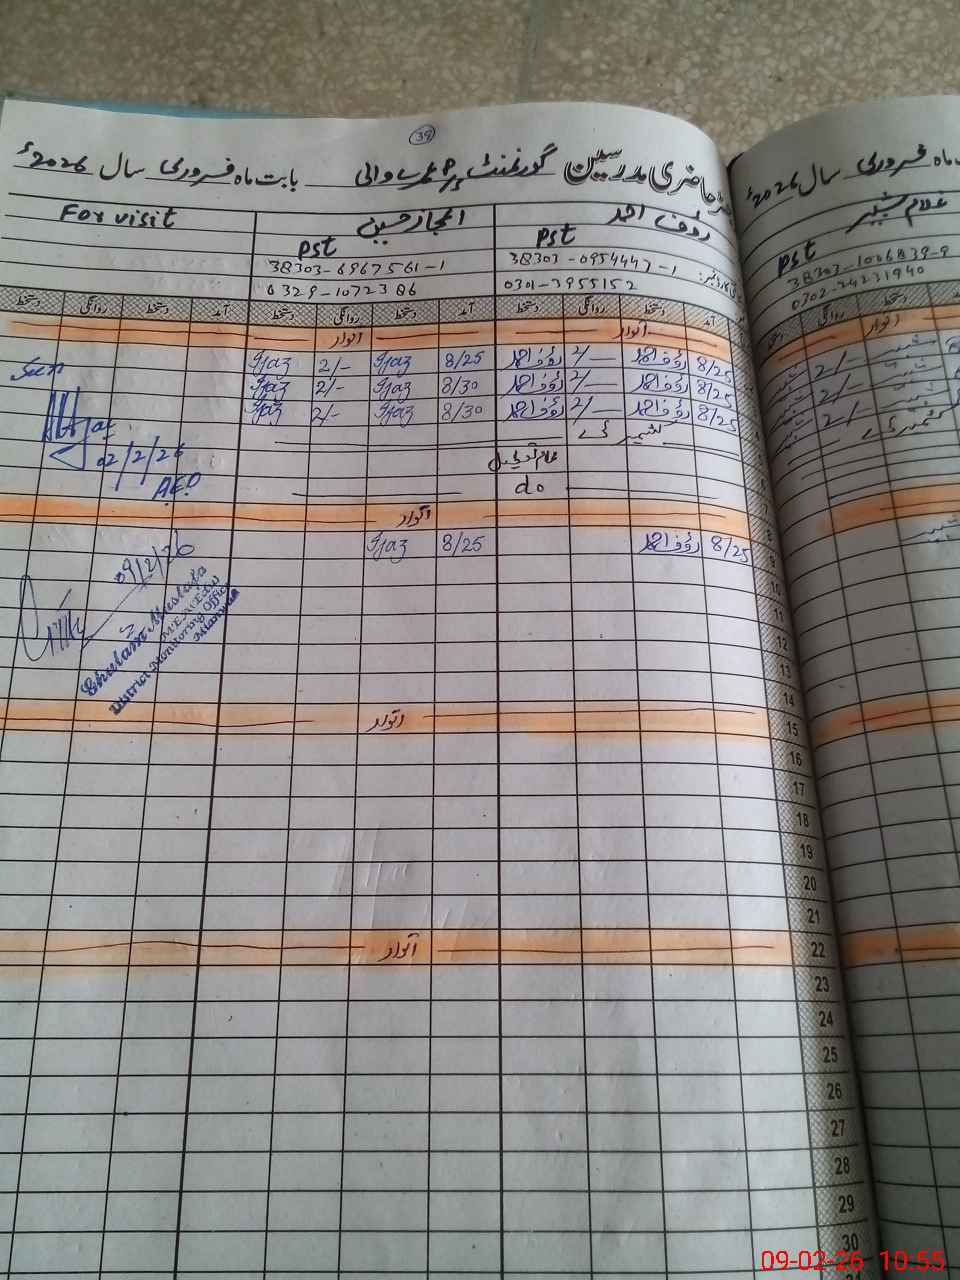 39
رجسٹر حاضری مدرسین گورنمنٹ بابت ماہ فروری سال 2026ء
For visit
اعجاز حسین
رؤف احمد
Pst
Pst
38303-6967561-1
38303-0954447-1
0329-1072386
0301-3955152
دستخط روانگی دستخط آمد دستخط روانگی دستخط آمد دستخط روانگی دستخط آمد
اتوار اتوار
Ijaz 2/- Ijaz 8/25 رؤف احمد 2/- رؤف احمد 8/25
Seen
Ijaz 2/- Ijaz 8/30 رؤف احمد 2/- رؤف احمد 8/25
Ijaz 2/- Ijaz 8/30 رؤف احمد 2/- رؤف احمد 8/25
کشمیر ڈے
02/2/26
AEO
عام تعطیل
do
اتوار
Ijaz 8/25 رؤف احمد 8/25
09/2/26
Ghulam Mustafa
MEA(Edu)
District Monitoring Office
Mianwali
9
10
11
12
13
14
اتوار 15
16
17
18
19
20
21
اتوار 22
23
24
25
26
27
28
29
30
ماہ فروری سال 2026ء
غلام شبیر
Pst
38303-1006839-9
0302-24231940
روانگی دستخط
اتوار
2/- شبیر
2/- شبیر
2/- شبیر
کشمیر ڈے
اتوار
شبیر
09-02-26 10:55